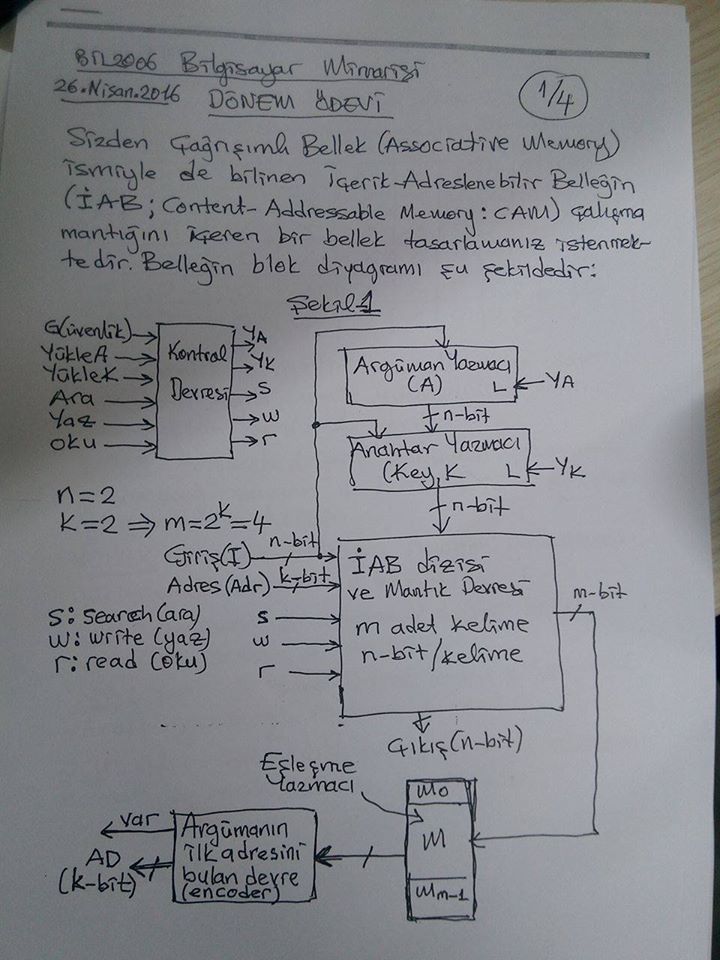 BİL2006 Bilgisayar Mimarisi
26.Nisan.2016 DÖNEM ÖDEVİ
1/4
Sizden Çağrışımlı Bellek (Associative Memory)
ismiyle de bilinen İçerik-Adreslenebilir Belleğin
(İAB; Content-Addressable Memory: CAM) çalışma
mantığını içeren bir bellek tasarlamanız istenmek-
tedir. Belleğin blok diyagramı şu şekildedir:
Şekil-1
G(üvenlik)
YükleA
YükleK
Ara
Yaz
Oku
Kontrol
Devresi
YA
YK
S
W
r
Argüman Yazmacı
(A) L
YA
n-bit
Anahtar Yazmacı
(Key, K L
YK
n-bit
n=2
k=2 ⇒ m=2^k=4
Giriş(I) n-bit
Adres(Adr) k-bit
S: search (ara)
W: write (yaz)
r: read (oku)
S
W
r
İAB dizisi
ve Mantık Devresi
m adet kelime
n-bit/kelime
m-bit
Çıkış(n-bit)
Eşleşme
Yazmacı
M0
M
Mm-1
Argümanın
ilk adresini
bulan devre
(encoder)
var
AD
(k-bit)